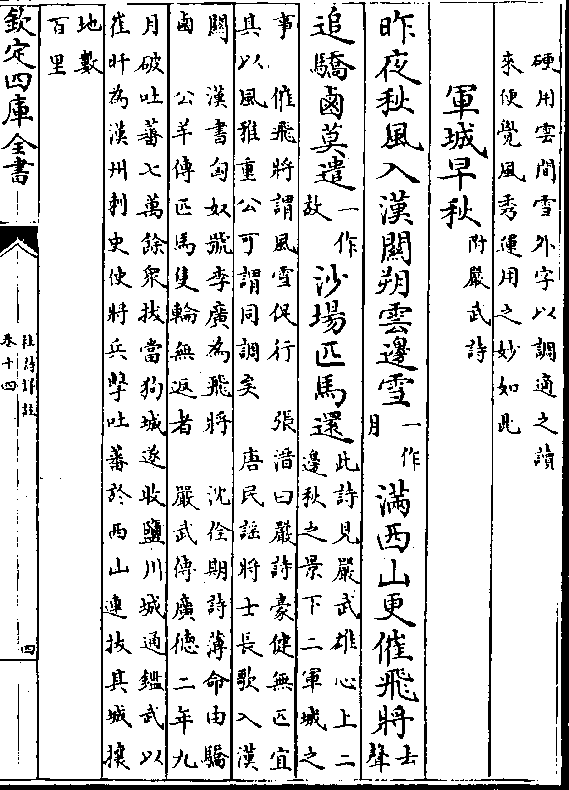 硬用雲間雪外字以調適之讀
來便覺風秀運用之妙如此
軍城早秋附嚴武詩
昨夜秋風入漢關朔雲邊雪一作月滿西山更催飛將士聲
追驕鹵莫遣一作故沙場匹馬還此詩見嚴武雄心上二
邊秋之景下二軍城之
事 催飛將謂風雪促行 張潽曰嚴詩豪健無匹宜
其以風雅重公可謂同調矣 唐民謡將士長歌入漢
關 漢書匈奴號李廣為飛將 沈佺期詩薄命由驕
鹵 公羊傳匹馬隻輪無返者 嚴武傳廣德二年九
月破吐蕃七萬餘衆拔當狗城遂收鹽川城通鑑武以
崔旰為漢州刺史使將兵擊吐蕃於西山連拔其城攘
地數
百里
欽定四庫全書
杜詩詳註
卷十四
四